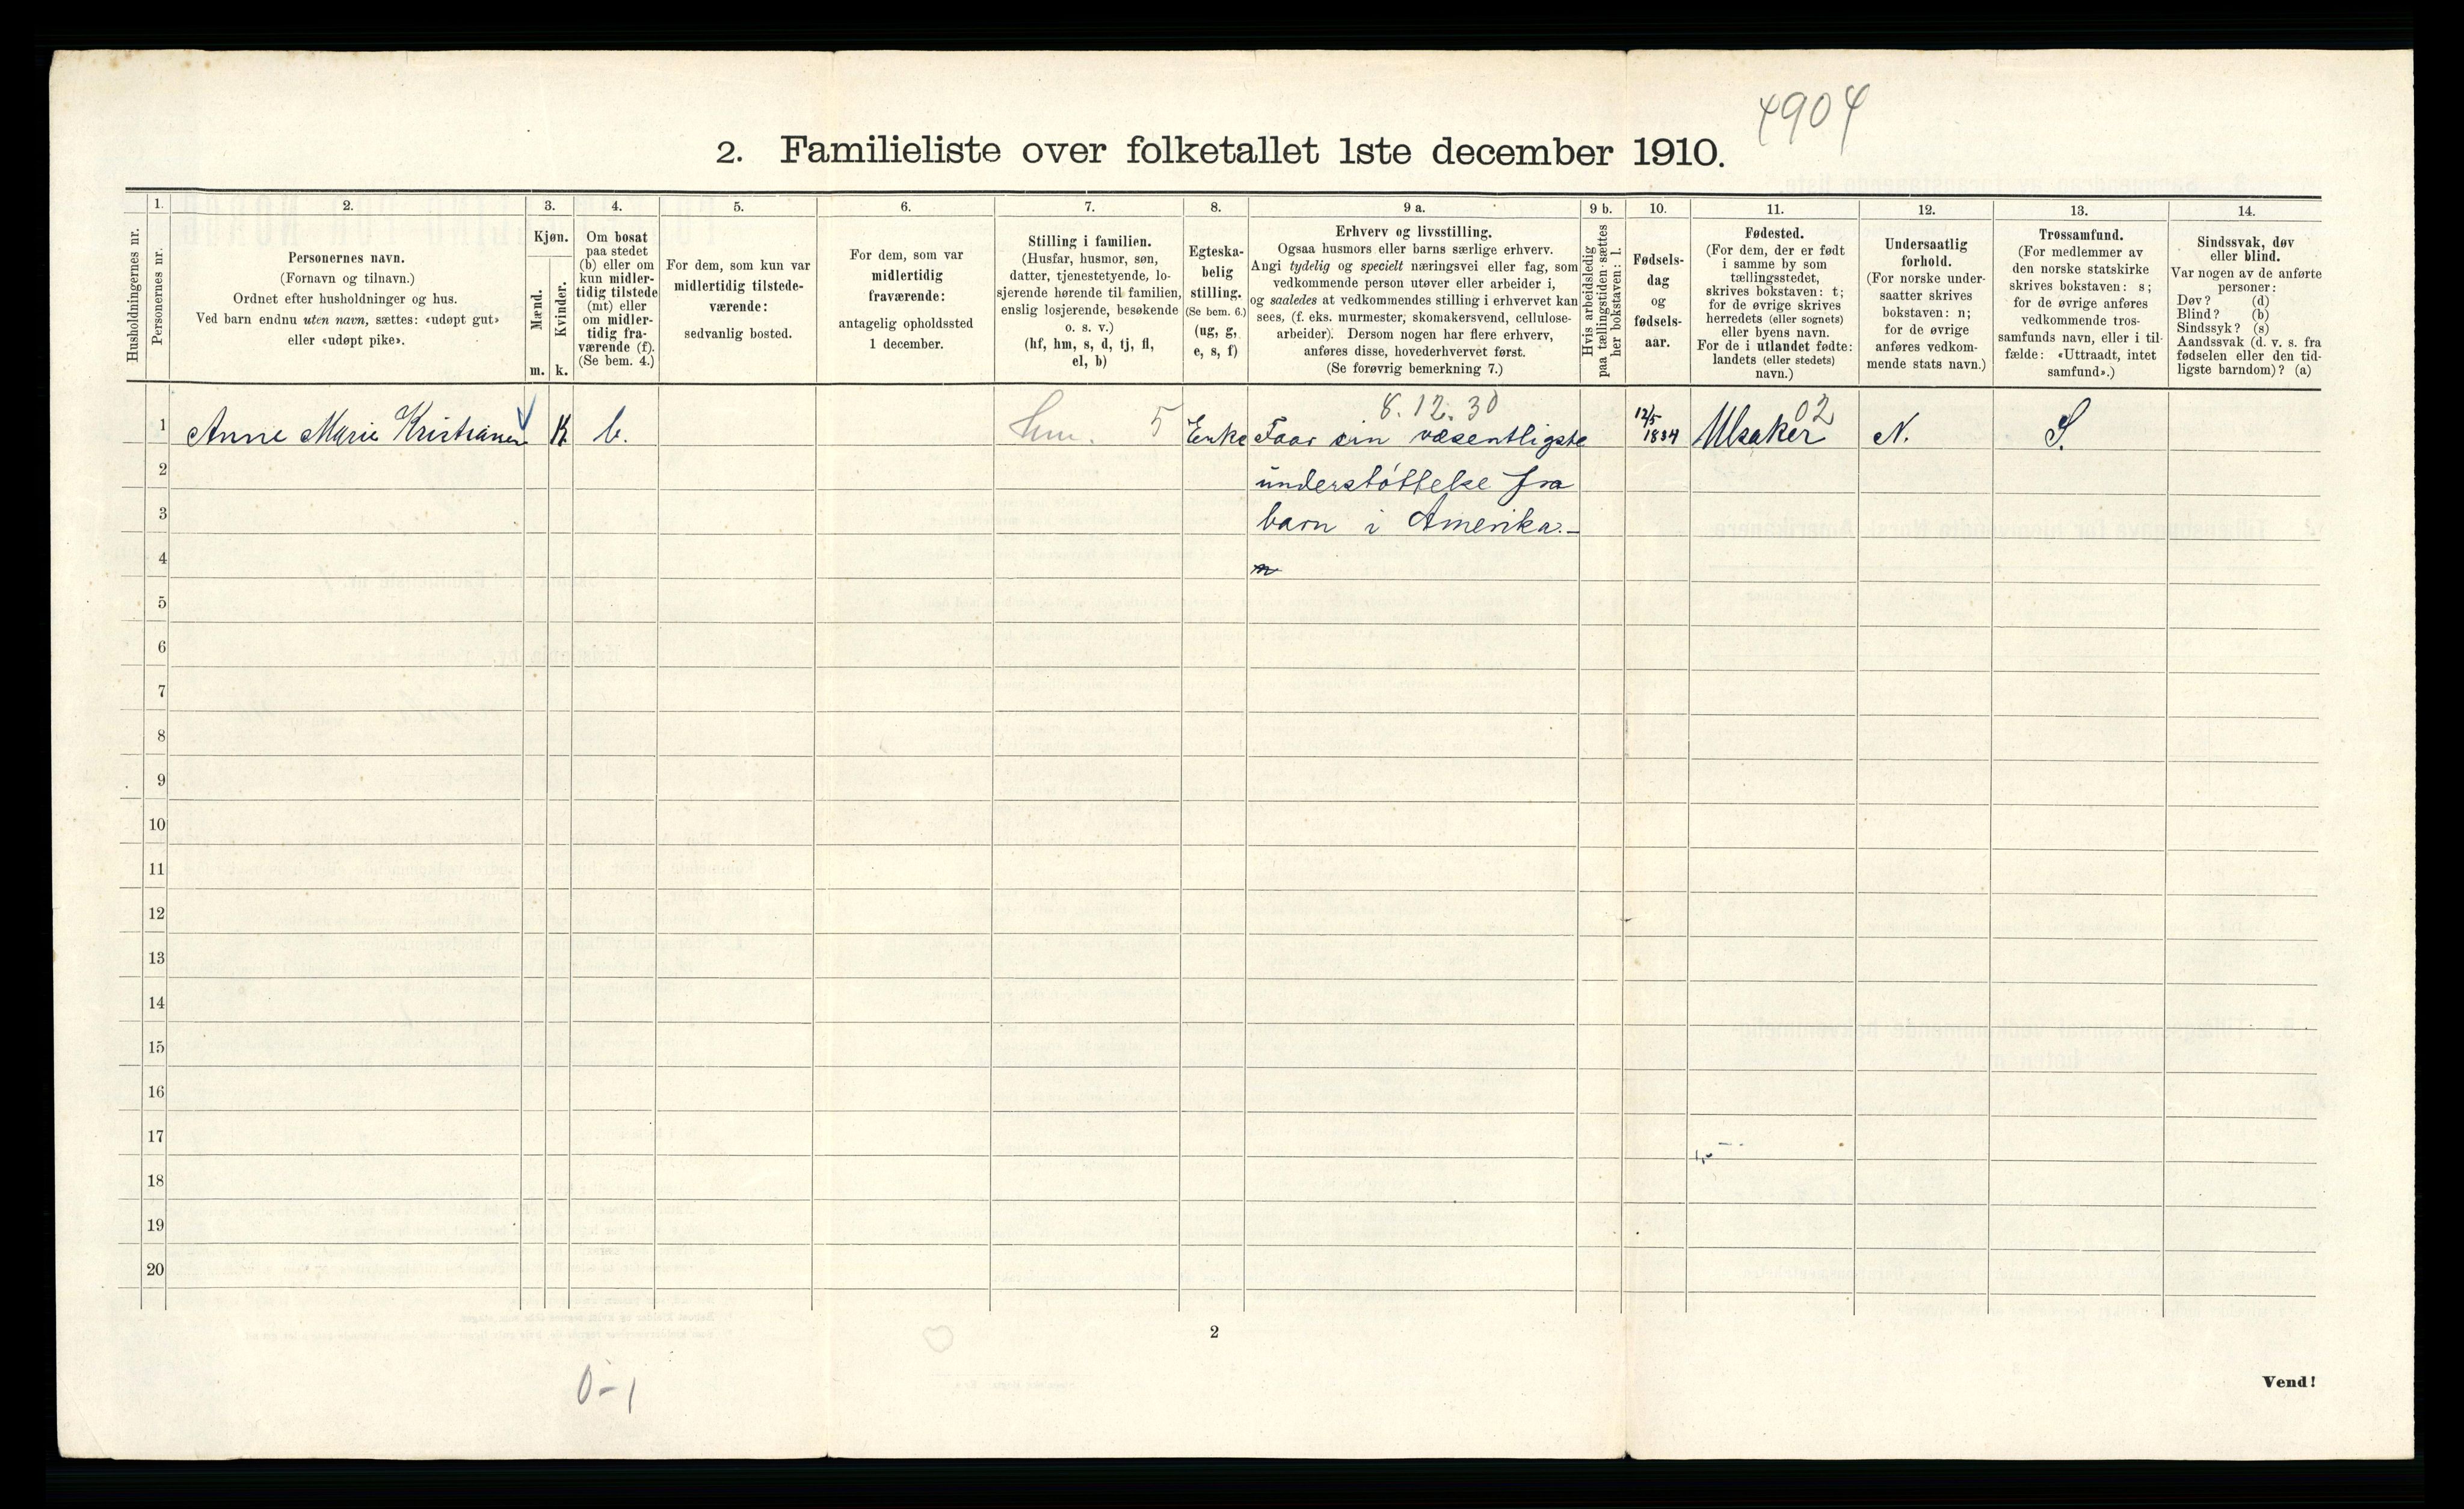 4904
2. Familieliste over folketallet 1ste december 1910.
Husholdningernes nr.
1.
Personernes nr.
2.
Personernes navn.
(Fornavn og tilnavn.)
Ordnet efter husholdninger og hus.
Ved barn endnu uten navn, sættes: «udøpt gut»
eller «udøpt pike».
3.
Kjøn.
Mænd.
Kvinder.
m. k.
4.
Om bosat
paa stedet
(b) eller om
kun midler-
tidig tilstede
(mt) eller
om midler-
tidig fra-
værende (f).
(Se bem. 4.)
5.
For dem, som kun var
midlertidig tilstede-
værende:
sedvanlig bosted.
6.
For dem, som var
midlertidig
fraværende:
antagelig opholdssted
1 december.
7.
Stilling i familien.
(Husfar, husmor, søn,
datter, tjenestetyende, lo-
sjerende hørende til familien,
enslig losjerende, besøkende
o. s. v.)
(hf, hm, s, d, tj, fl,
el, b)
8.
Egteska-
belig
stilling.
(Se bem. 6.)
(ug, g,
e, s, f)
9 a.
Erhverv og livsstilling.
Ogsaa husmors eller barns særlige erhverv.
Angi tydelig og specielt næringsvei eller fag, som
vedkommende person utøver eller arbeider i,
og saaledes at vedkommendes stilling i erhvervet kan
sees, (f. eks. murmester, skomakersvend, cellulose-
arbeider). Dersom nogen har flere erhverv,
anføres disse, hovederhvervet først.
(Se forøvrig bemerkning 7.)
9 b.
Hvis arbeidsledig
paa tællingstiden sættes
her bokstaven: l.
10.
Fødsels-
dag
og
fødsels-
aar.
11.
Fødested.
(For dem, der er født
i samme by som
tællingsstedet,
skrives bokstaven: t;
for de øvrige skrives
herredets (eller sognets)
eller byens navn.
For de i utlandet fødte:
landets (eller stedets)
navn.)
12.
Undersaatlig
forhold.
(For norske under-
saatter skrives
bokstaven: n;
for de øvrige
anføres vedkom-
mende stats navn.)
13.
Trossamfund.
(For medlemmer av
den norske statskirke
skrives bokstaven: s;
for de øvrige anføres
vedkommende tros-
samfunds navn, eller i til-
fælde: «Uttraadt, intet
samfund».)
14.
Sindssvak, døv
eller blind.
Var nogen av de anførte
personer:
Døv? (d)
Blind? (b)
Sindssyk? (s)
Aandssvak (d. v. s. fra
fødselen eller den tid-
ligste barndom)? (a)
8.12.30
02
1 Anne Marie Kristiansen K b. hm. 5 Enke Faar sin væsentligste 12/5 1834 Ulsaker N. S.
2 understøttelse fra
3 barn i Amerika.-
4
5
6
7
8
9
10
11
12
13
14
15
16
17
18
19
20
2
0-1
Vend!